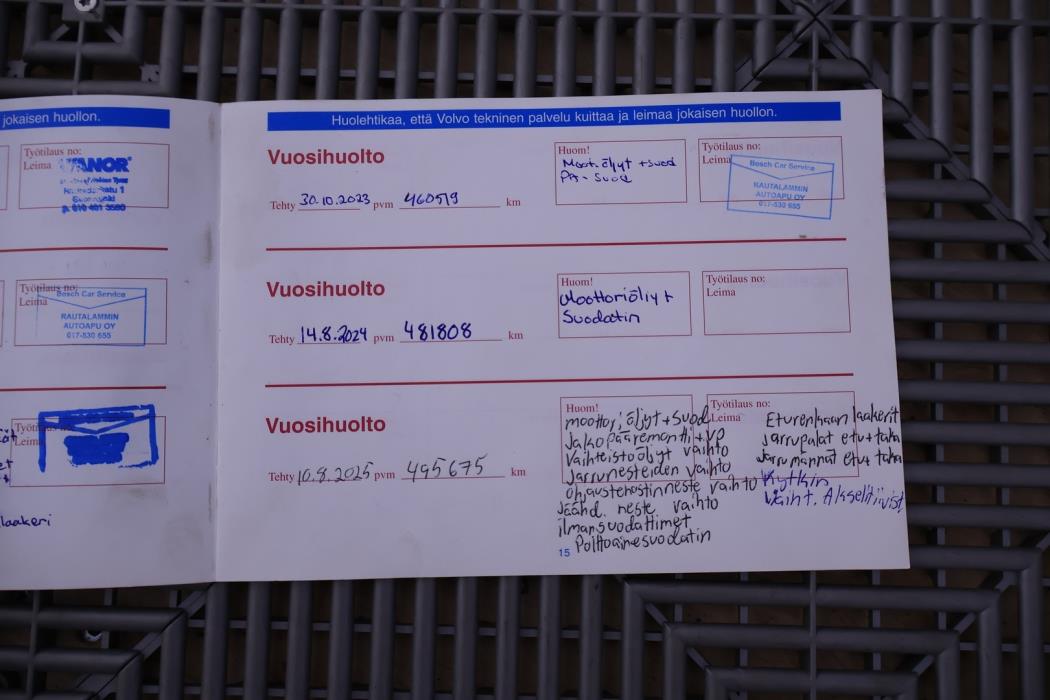 jokaisen huollon.
Työtilaus no:
Leima
p. 010 401 3580
Työtilaus no:
Leima
Bosch Car Service
RAUTALAMMIN
AUTOAPU OY
017-530 655
laakeri
Huolehtikaa, että Volvo tekninen palvelu kuittaa ja leimaa jokaisen huollon.
Vuosihuolto
Tehty 30.10.2023 pvm 460519 km
Huom!
Moot.öljyt +suod
PA-suod
Työtilaus no:
Leima
Bosch Car Service
RAUTALAMMIN
AUTOAPU OY
017-530 655
Vuosihuolto
Tehty 14.8.2024 pvm 481808 km
Huom!
Moottoriöljyt
Suodatin
Työtilaus no:
Leima
Vuosihuolto
Tehty 10.8.2025 pvm 495675 km
Huom!
moottoriöljyt + suod
Jakopääremontti + vp
Vaihteistoöljyt vaihto
Jarrunesteiden vaihto
ohjaustehostinneste vaihto
Jäähd. neste vaihto
ilmansuodattimet
Polttoainesuodatin
Leima
Eturenkaan laakerit
Jarrupalat etu+taka
Jarrumännät etu+taka
Kytkin
Vaiht. Akselitiivist
15